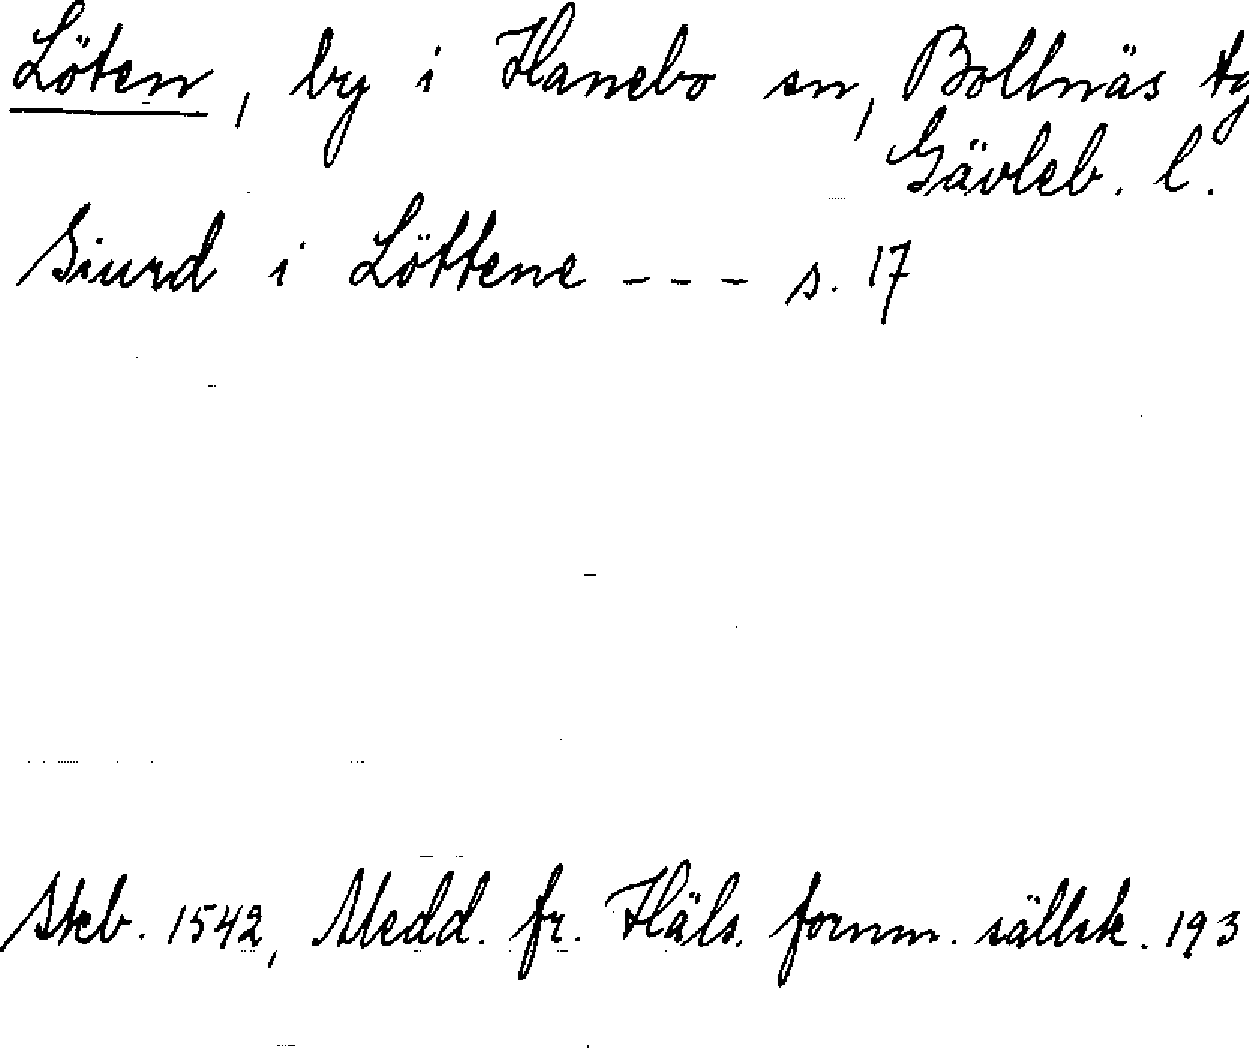 Löten, by i Hanebo sn, Bollnäs tg
Gävleb. l.
Siurd i Löttene --- s. 17
Skb. 1542, Medd. fr. Häls. fornm. sällsk. 193